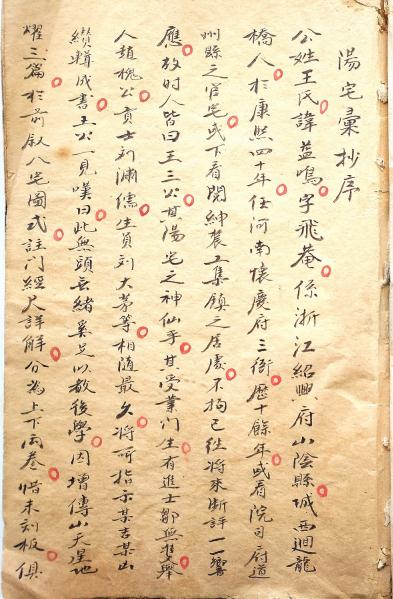 陽宅彙抄序
公姓王氏諱益鳴字飛菴係浙江紹興府山陰縣城西迴龍
橋人於康熙四十年任河南懷慶府三衙歷十餘年或看院司府道
州縣之官宅或下看閱紳農工集鎮之居處不拘已往將來斷評一一響
應故时人皆曰王三公其陽宅之神仙乎其受業門生有進士鄒無隻舉
人趙槐公貢士刘溥儒生員刘大茅等相隨最久將所指示某吉某凶
纘輯成書王公一見嘆曰此無頭無緒奚足以教後學因增傳山天星地
耀三篇於前叙八宅圖式註门經尺詳解分為上下両卷惜未刻板俱